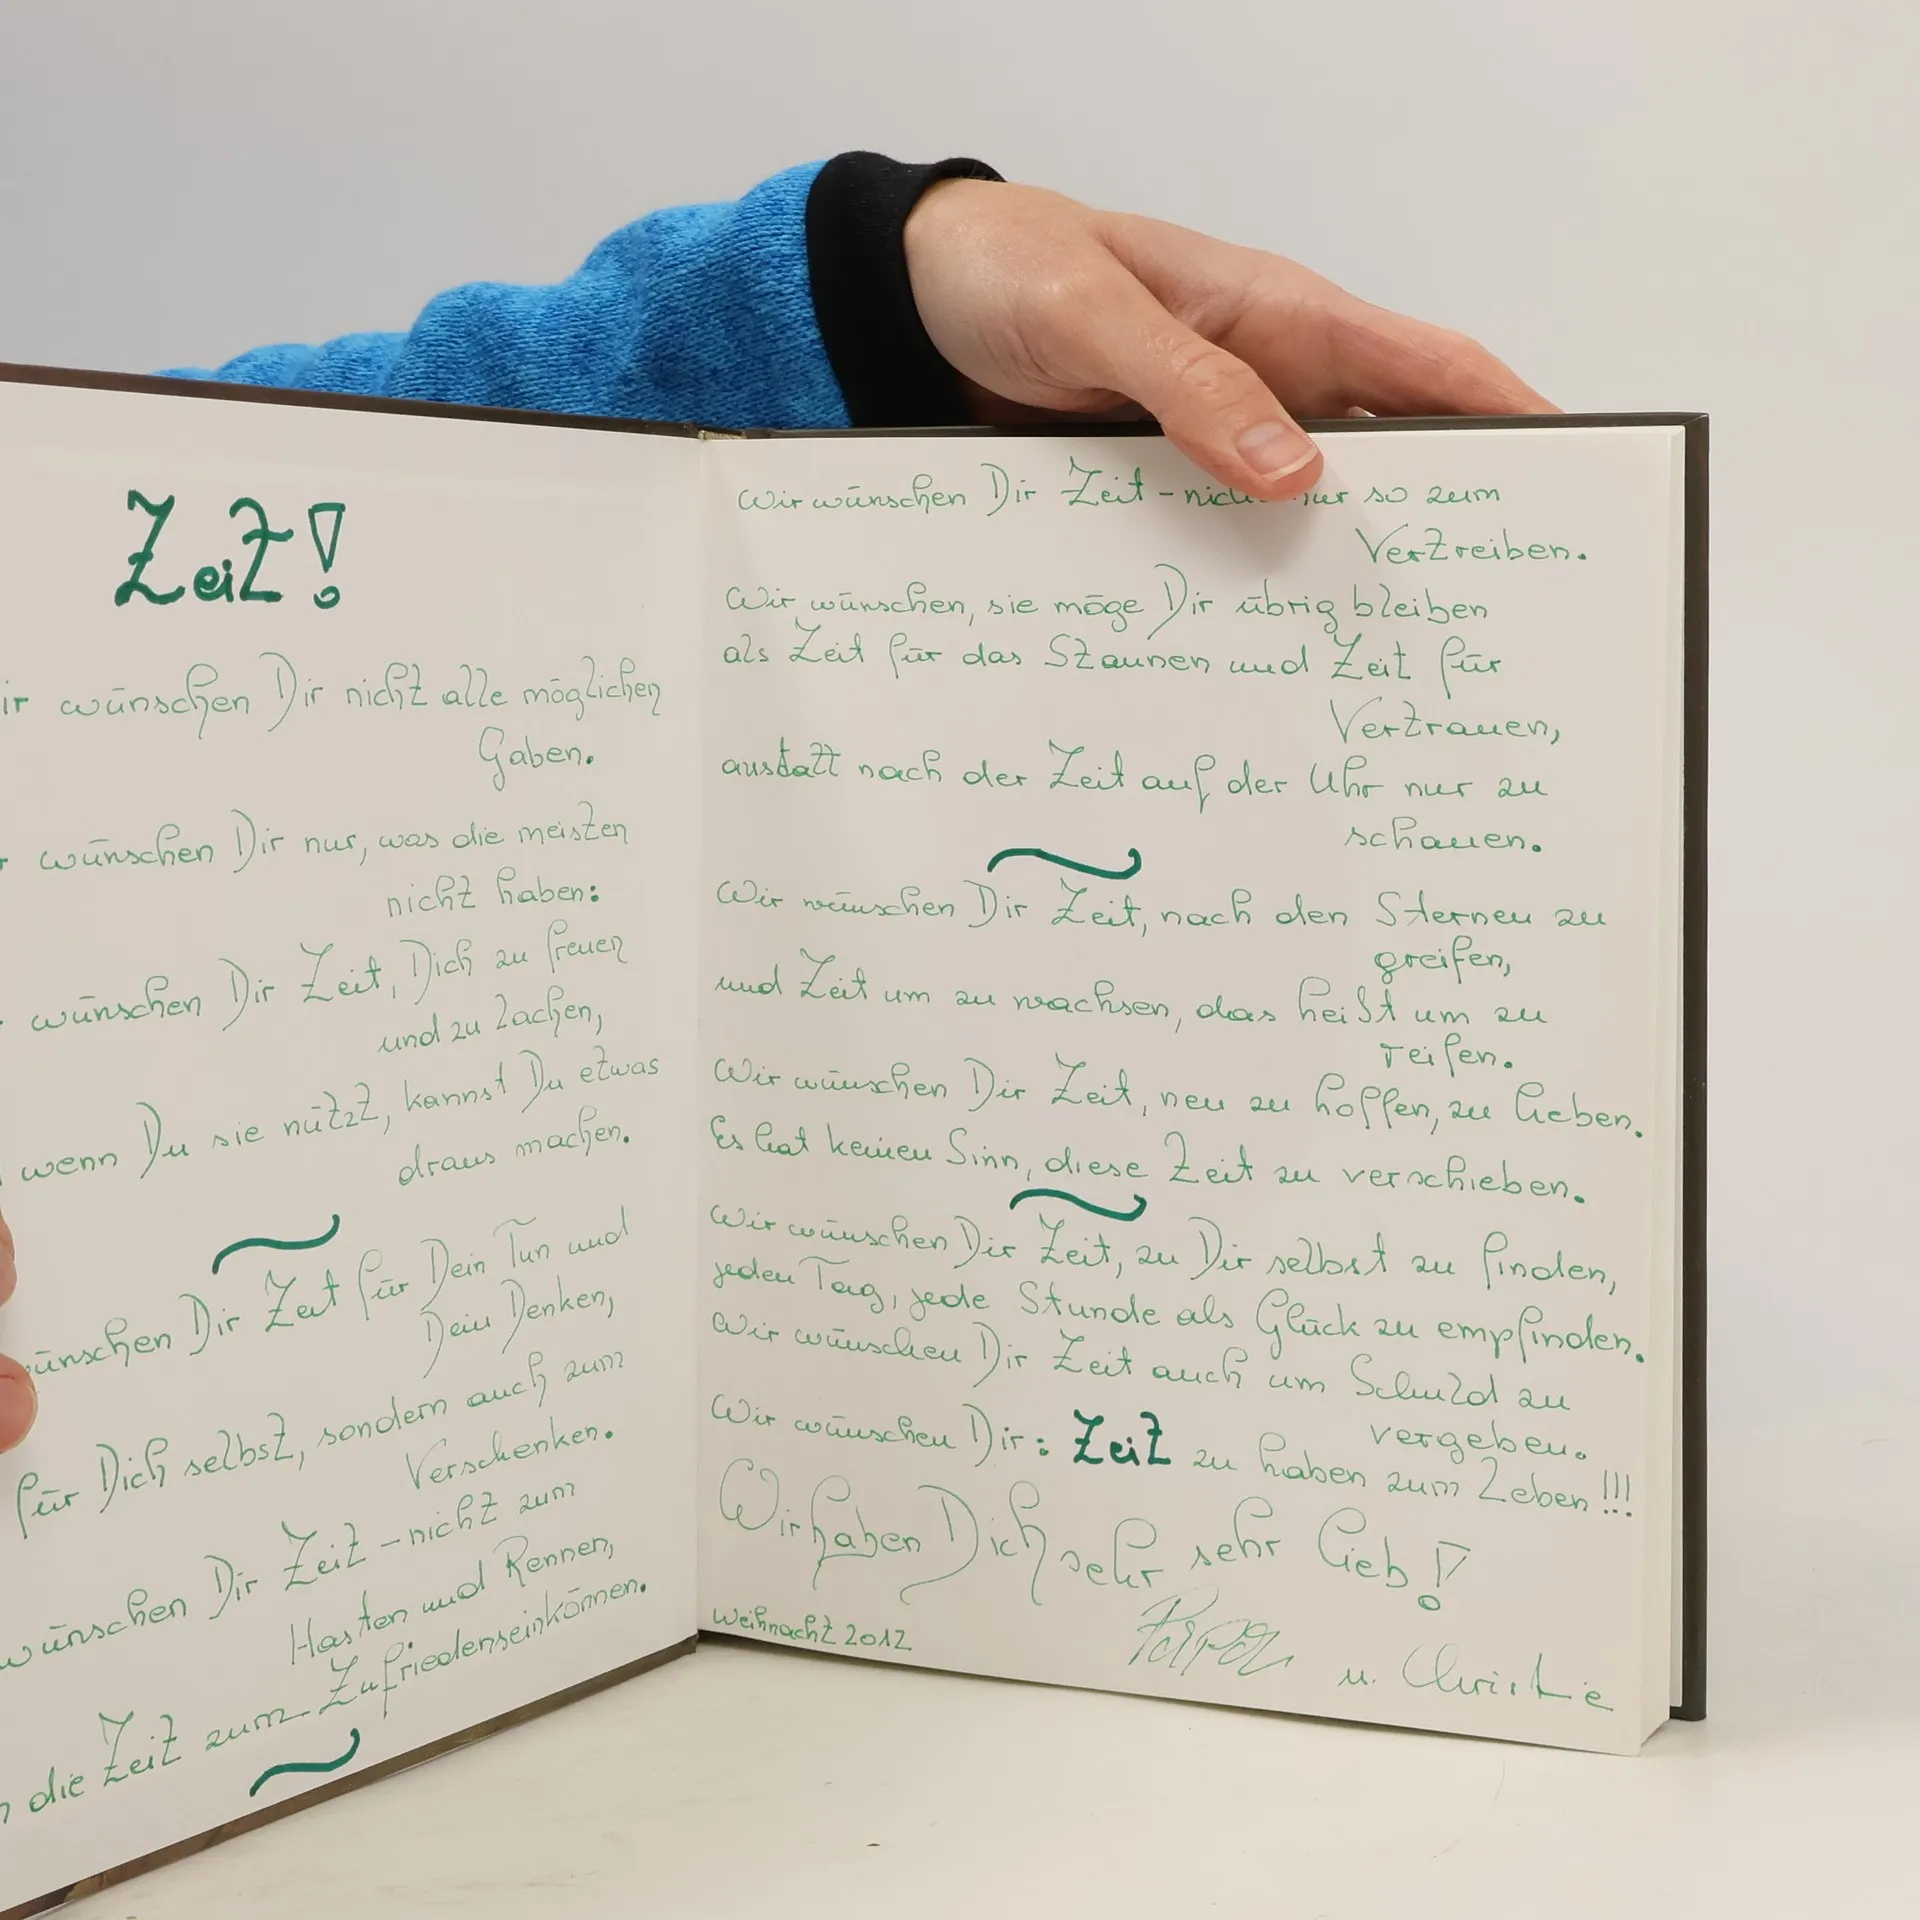 Zeit!
wünschen Dir nicht alle möglichen
Gaben.
wünschen Dir nur, was die meisten
nicht haben:
wünschen Dir Zeit, Dich zu freuen
und zu lachen,
wenn Du sie nützt, kannst Du etwas
draus machen.
Dir Zeit für Dein Tun und
Dein Denken,
für Dich selbst, sondern auch zum
Verschenken.
wünschen Dir Zeit - nicht zum
Hasten und Rennen,
die Zeit zum Zufriedenseinkönnen.
Wir wünschen Dir Zeit - nur so zum
Vertreiben.
Wir wünschen, sie möge Dir übrig bleiben
als Zeit für das Staunen und Zeit für
Vertrauen,
anstatt nach der Zeit auf der Uhr nur zu
schauen.
Wir wünschen Dir Zeit, nach den Sternen zu
greifen,
und Zeit um zu wachsen, das heißt um zu
reifen.
Wir wünschen Dir Zeit, neu zu hoffen, zu lieben.
Es hat keinen Sinn, diese Zeit zu verschieben.
Wir wünschen Dir Zeit, zu Dir selbst zu finden,
jeden Tag, jede Stunde als Glück zu empfinden.
Wir wünschen Dir Zeit auch um Schuld zu
vergeben.
Wir wünschen Dir: Zeit zu haben zum Leben!!!
Wir haben Dich sehr sehr lieb!
Weihnacht 2012
Papa u. Christie